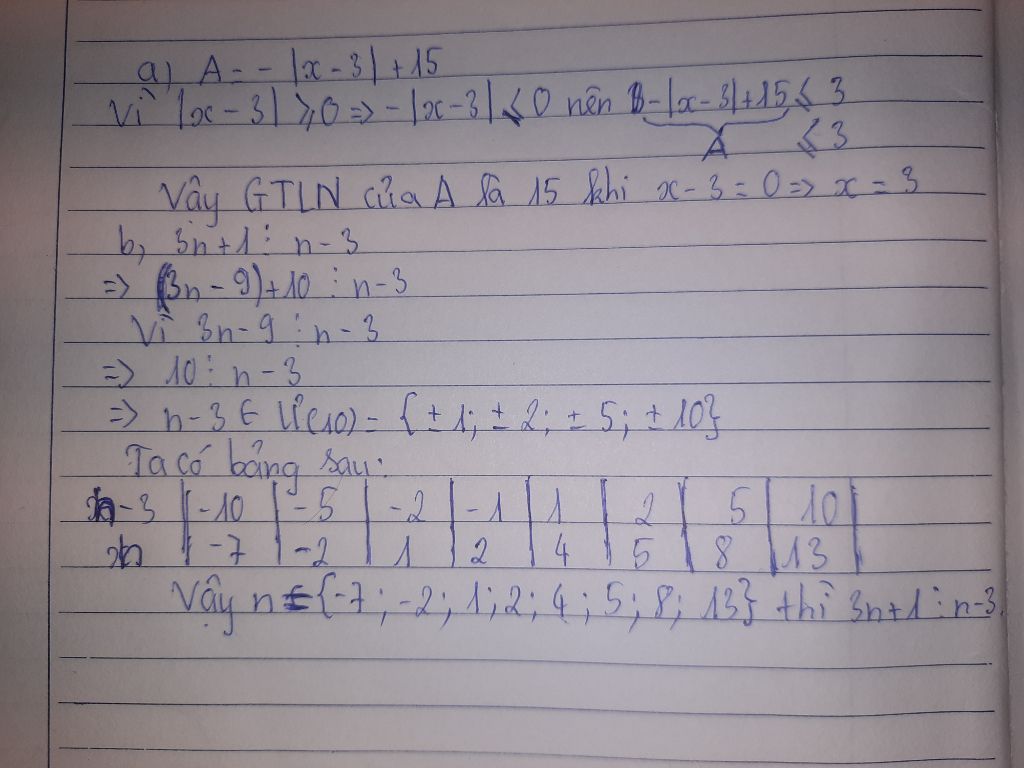 a) A = - |x - 3| + 15
Vì |x - 3| ⩾ 0 => - |x - 3| ⩽ 0 nên - |x - 3| + 15 ⩽ 3
A ⩽ 3
Vậy GTLN của A là 15 khi x - 3 = 0 => x = 3
b, 3n + 1 ⋮ n - 3
=> (3n - 9) + 10 ⋮ n - 3
Vì 3n - 9 ⋮ n - 3
=> 10 ⋮ n - 3
=> n - 3 ∈ Ư(10) = {± 1; ± 2; ± 5; ± 10}
Ta có bảng sau:
n - 3 | -10 | -5 | -2 | -1 | 1 | 2 | 5 | 10 |
n | -7 | -2 | 1 | 2 | 4 | 5 | 8 | 13 |
Vậy n ∈ {-7 ; -2 ; 1 ; 2 ; 4 ; 5 ; 8 ; 13} thì 3n + 1 ⋮ n - 3.